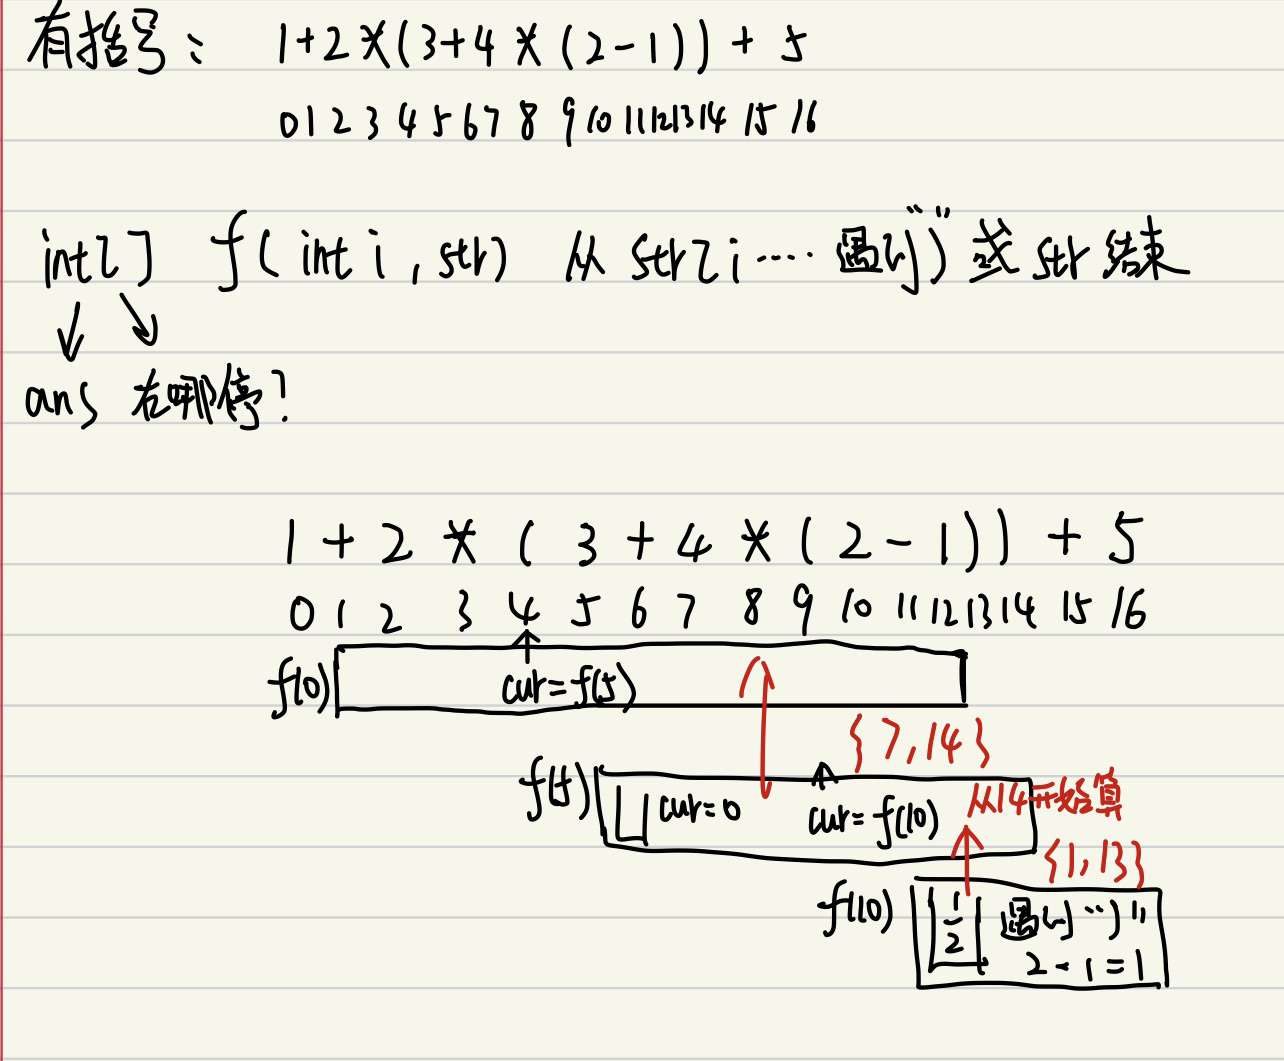 有括号： 1+2*(3+4*(2-1))+5
0 1 2 3 4 5 6 7 8 9 10 11 12 13 14 15 16
int[] f(int i, str) 从 str[i…… 遇到")"或 str 结束
ans 在哪停?
1+2*(3+4*(2-1))+5
0 1 2 3 4 5 6 7 8 9 10 11 12 13 14 15 16
f(0) cur=f(5)
{7,14}
f(5) cur=0 cur=f(10) 从14开始算
{1,13}
f(10) - 2 遇到")"
2-1=1